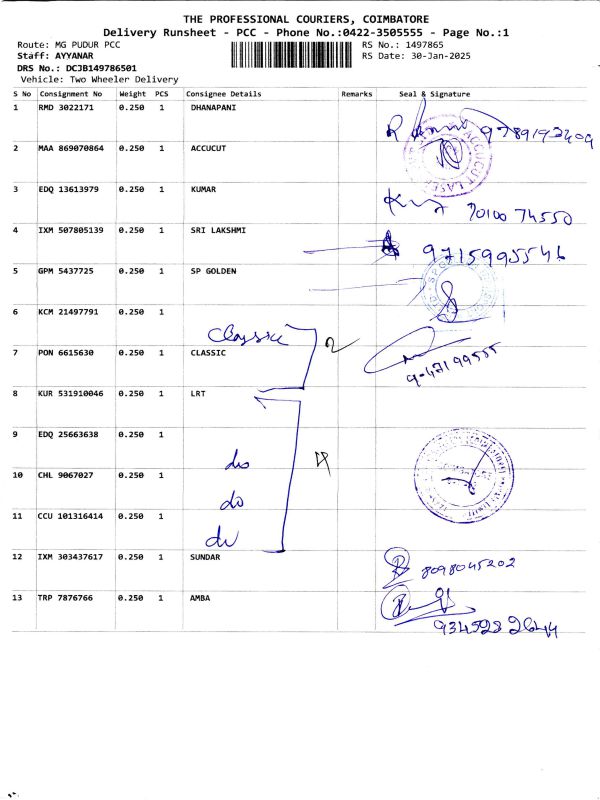 THE PROFESSIONAL COURIERS, COIMBATORE
Delivery Runsheet - PCC - Phone No.:0422-3505555 - Page No.:1
Route: MG PUDUR PCC RS No.: 1497865
Staff: AYYANAR RS Date: 30-Jan-2025
DRS No.: DCJB149786501
Vehicle: Two Wheeler Delivery
S No Consignment No Weight PCS Consignee Details Remarks Seal & Signature
1 RMD 3022171 0.250 1 DHANAPANI
2 MAA 869070864 0.250 1 ACCUCUT
ACCUCUT LASER
3 EDQ 13613979 0.250 1 KUMAR
70100 74550
4 IXM 507805139 0.250 1 SRI LAKSHMI
9715995546
5 GPM 5437725 0.250 1 SP GOLDEN
6 KCM 21497791 0.250 1
Classic 2
7 PON 6615630 0.250 1 CLASSIC
8 KUR 531910046 0.250 1 LRT
9 EDQ 25663638 0.250 1
do 4
10 CHL 9067027 0.250 1
do
11 CCU 101316414 0.250 1
do
12 IXM 303437617 0.250 1 SUNDAR
8098045202
13 TRP 7876766 0.250 1 AMBA